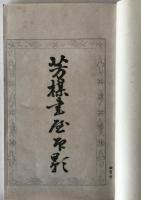 芳樸書屋印影